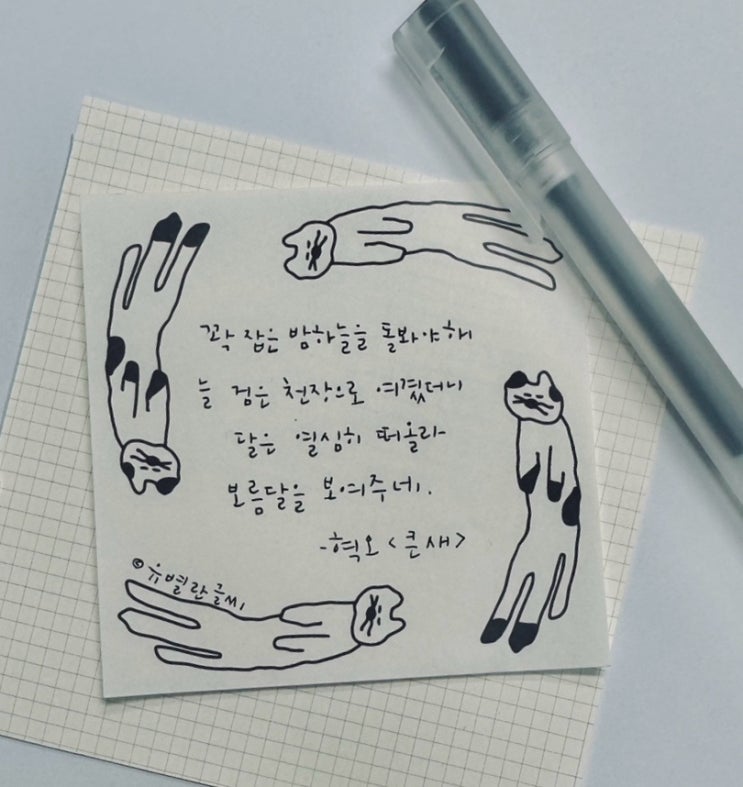 꽉 잡은 밤하늘을 돌봐야해
늘 검은 천장으로 여겼더니
달은 열심히 떠올라
보름달을 보여주네.
-혁오 <큰새>
©유별란글씨